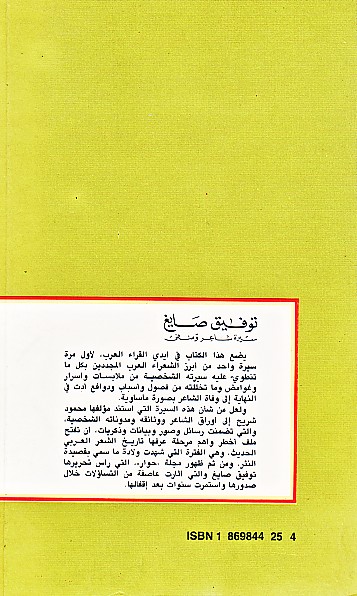 توفيق صايغ
سيرة شاعر ومنفى
يضع هذا الكتاب في أيدي القراء العرب، لأول مرة
سيرة واحد من أبرز الشعراء العرب المجددين بكل ما
تنطوي عليه سيرته الشخصية من ملابسات وأسرار
وغوامض وما تخللته من فصول وأسباب ودوافع أدت في
النهاية إلى وفاة الشاعر بصورة مأساوية.
ولعل من شأن هذه السيرة التي استند مؤلفها محمود
شريح إلى أوراق الشاعر ووثائقه ومدوناته الشخصية،
والتي تضمنت رسائل وصور وبيانات وذكريات، أن تفتح
ملف أخطر وأهم مرحلة عرفها تاريخ الشعر العربي
الحديث، وهي الفترة التي شهدت ولادة ما سمي بقصيدة
النثر، ومن ثم ظهور مجلة «حوار»، التي رأس تحريرها
توفيق صايغ والتي أثارت عاصفة من التساؤلات خلال
صدورها واستمرت سنوات بعد إقفالها.
ISBN 1 869844 25 4